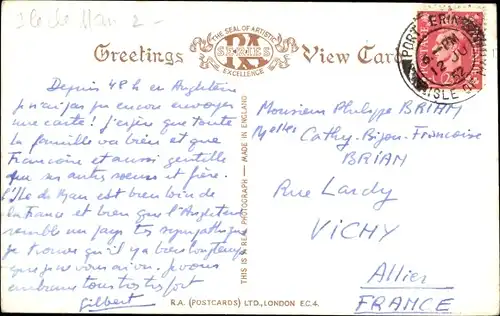 Ile de Man 2 -
THE SEAL OF ARTISTIC
Greetings RA SERIES View Card
EXCELLENCE
PORT ERIN
6 - PM
12 JU
52
ISLE OF MAN
Depuis 48 h en Angleterre
je n'ai pas pu encore envoyer
une carte! J'espère que toute
la famille va bien et que
Francoine est aussi gentille
que ses autres soeurs et frère.
l'Ile de Man est bien loin de
la France et bien que l'Angleterre
semble un pays très sympathique
je trouve qu'il y a bien longtemps
que je ne vous ai vu. je vous
embrasse tous très très fort
Gilbert
THIS IS A REAL PHOTOGRAPH — MADE IN ENGLAND
Monsieur Philippe BRIAM
Melles Cathy-Bijou-Francoise
BRIAM
Rue Lardy
VICHY
Allier
FRANCE
R.A. (POSTCARDS) LTD., LONDON E.C.4.